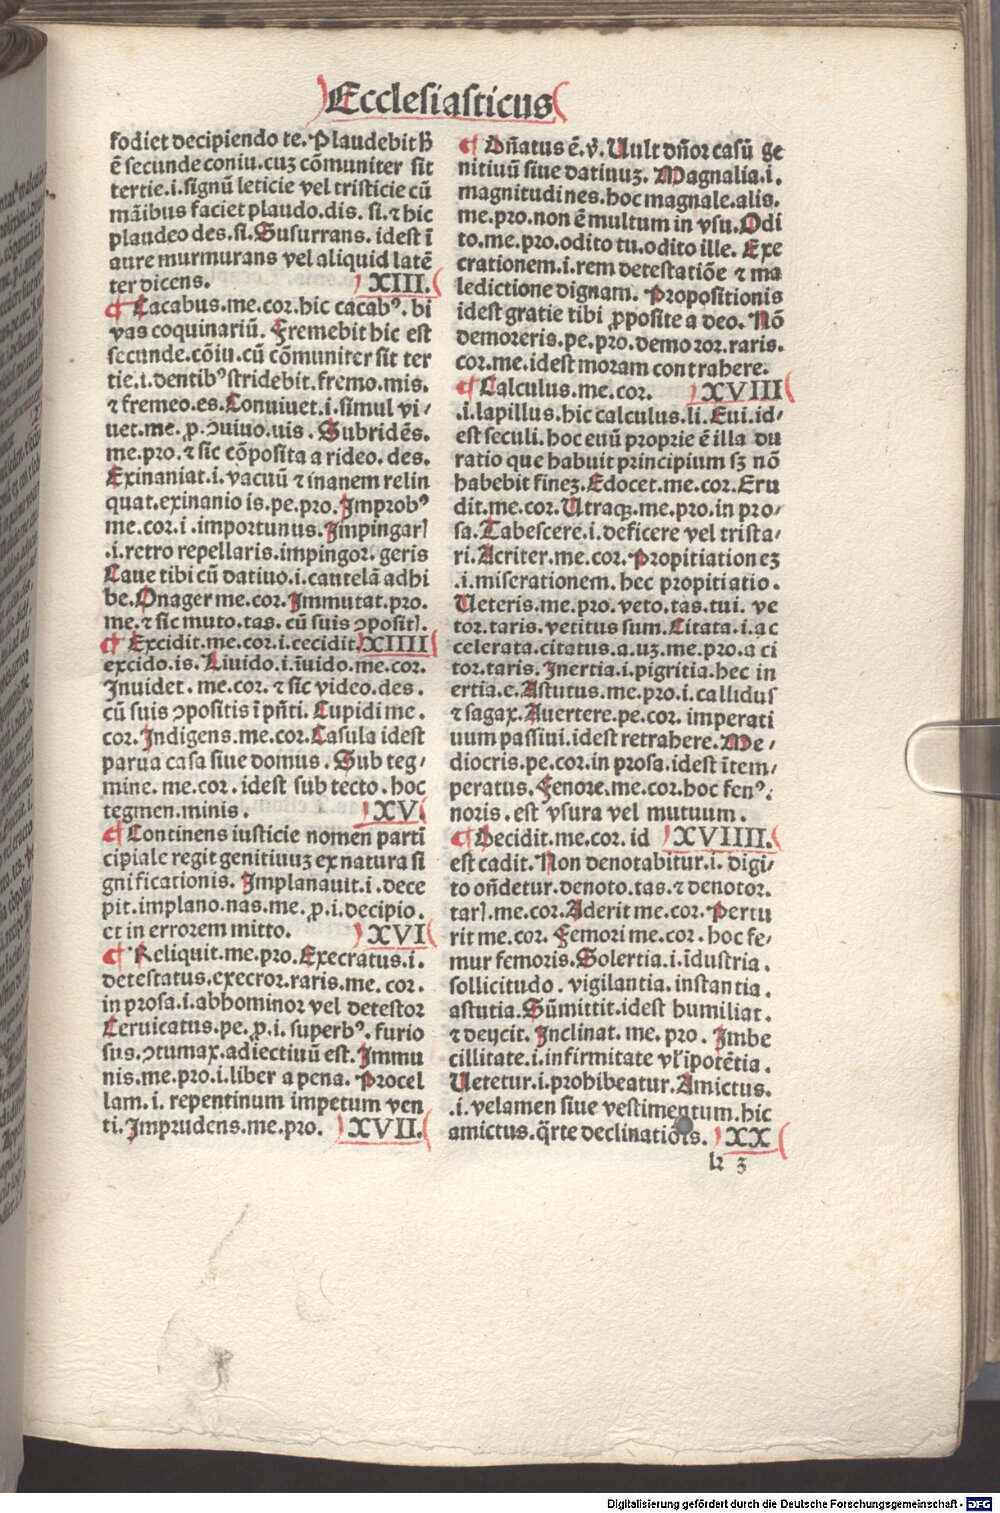 Ecclesiasticus
fodiet decipiendo te. Plaudebit ß
ē secunde coniu. cuꝫ cōmuniter sit
tertie .i. signū leticie vel tristicie cū
māibus faciet plaudo. dis. si. ⁊ hic
plaudeo des. si. Susurrans. idest ī
aure murmurans vel aliquid latē
ter dicens. XIII.
¶ Cacabus. me. cor. hic cacabꝰ. bi
vas coquinariū. Fremebit hic est
secunde. cōiu. cū cōmuniter sit ter
tie .i. dentibꝰ stridebit. fremo. mis.
⁊ fremeo. es. Conuiuet .i. simul vi/
uet. me. p. ɔuiuo. uis. Subridēs.
me. pro. ⁊ sic cōposita a rideo. des.
Exinaniat .i. vacuū ⁊ inanem relin
quat. exinanio is. pe. pro. Improbꝰ
me. cor. i. importunus. Impingarꝭ
.i. retro repellaris. impingor. geris
Caue tibi cū datiuo .i. cautelā adhi
be. Onager me. cor. Immutat. pro.
me. ⁊ sic muto. tas. cū suis ɔpositꝭ.
¶ Excidit. me. cor. i. cecidit. XIIII
excido. is. Liuido .i. īuido. me. cor.
Inuidet. me. cor. ⁊ sic video. des.
cū suis ɔpositis ī pn̄ti. Cupidi me.
cor. Indigens. me. cor. Casula idest
parua casa siue domus. Sub teg/
mine. me. cor. idest sub tecto. hoc
tegmen. minis. XV.
¶ Continens iusticie nomen parti
cipiale regit genitiuuꝫ ex natura si
gnificationis. Implanauit .i. dece
pit. implano. nas. me. p. i. decipio.
et in errorem mitto. XVI
¶ Reliquit. me. pro. Execratus .i.
detestatus. execror. raris. me. cor.
in prosa .i. abhominor vel detestor
Ceruicatus. pe. p. i. superbꝰ. furio
sus. ɔtumax. adiectiuū est. Immu
nis. me. pro. i. liber a pena. Procel
lam. i. repentinum impetum ven
ti. Imprudens. me. pro. XVII.
¶ Dn̄atus ē. v̄. Uult dn̄or casū ge
nitiuū siue datiuuꝫ. Magnalia .i.
magnitudines. hoc magnale. alis.
me. pro. non ē multum in vsu. Odi
to. me. pro. odito tu. odito ille. Exe
crationem .i. rem detestatiōe ⁊ ma
ledictione dignam. Propositionis
idest gratie tibi ꝓposite a deo. Nō
demoreris. pe. pro. demoror. raris.
cor. me. idest moram contrahere.
¶ Calculus. me. cor. XVIII
.i. lapillus. hic calculus. li. Eui. id/
est seculi. hoc euū proprie ē illa du
ratio que habuit principium sꝫ nō
habebit fineꝫ. Edocet. me. cor. Eru
dit. me. cor. Utraqꝫ. me. pro. in pro/
sa. Tabescere .i. deficere vel trista/
ri. Acriter. me. cor. Propitiationeꝫ
.i. miserationem. hec propitiatio.
Ueteris. me. pro. veto. tas. tui. ve
tor. taris. vetitus sum. Citata .i. ac
celerata. citatus. a. uꝫ. me. pro. a ci
tor. taris. Inertia .i. pigritia. hec in
ertia. e. Astutus. me. pro. i. callidus
⁊ sagax. Auertere. pe. cor. imperati
uum passiui. idest retrahere. Me/
diocris. pe. cor. in prosa. idest ītem/
peratus. Fenore. me. cor. hoc fenꝰ.
noris. est vsura vel mutuum.
¶ Decidit. me. cor. id XVIIII.
est cadit. Non denotabitur .i. digi/
to on̄detur. denoto. tas. ⁊ denotor.
tarꝭ. me. cor. Aderit me. cor. Pertu
rit me. cor. Femori me. cor. hoc fe/
mur femoris. Solertia .i. īdustria.
sollicitudo. vigilantia. instantia.
astutia. Sūmittit. idest humiliat.
⁊ deijcit. Inclinat. me. pro. Imbe
cillitate .i. infirmitate vl̓ ipotētia.
Uetetur .i. prohibeatur. Amictus.
.i. velamen siue vestimentum. hic
amictus. q̄rte declinatiōis. XX
k 3
Digitalisierung gefördert durch die Deutsche Forschungsgemeinschaft - DFG